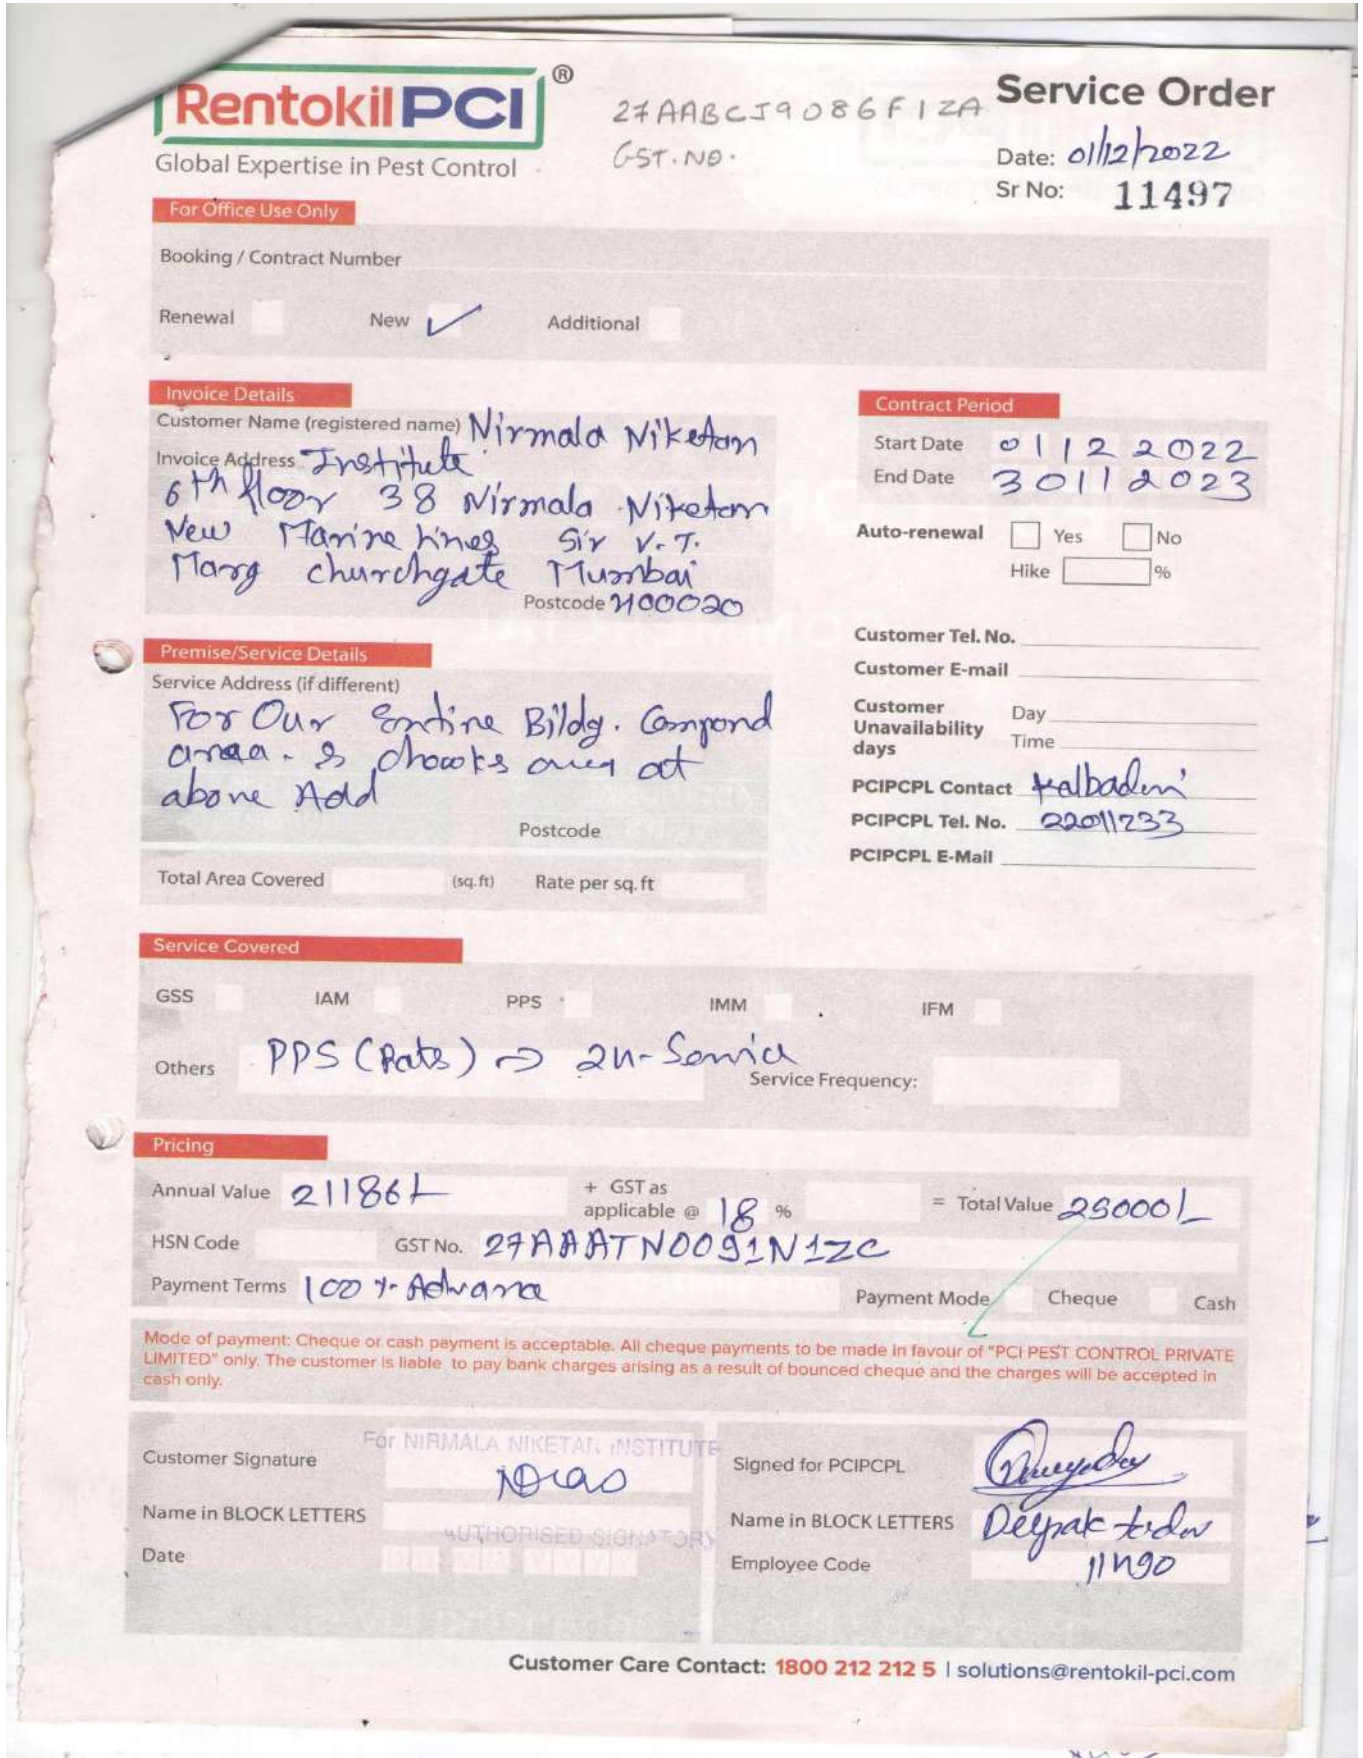 RentokilPCI®
Global Expertise in Pest Control
27AABCJ9086F1ZA
GST. NO.
Service Order
Date: 01/12/2022
Sr No: 11497
For Office Use Only
Booking / Contract Number
Renewal New ✓ Additional
Invoice Details
Customer Name (registered name) Nirmala Niketan
Invoice Address Institute
6th floor 38 Nirmala Niketan
New Marine lines Sir V.T.
Marg churchgate Mumbai
Postcode 400020
Contract Period
Start Date 01122022
End Date 30112023
Auto-renewal Yes No
Hike %
Customer Tel. No.
Customer E-mail
Customer Unavailability days Day
Time
PCIPCPL Contact Kalbadevi
PCIPCPL Tel. No. 22011233
PCIPCPL E-Mail
Premise/Service Details
Service Address (if different)
For Our Entire Bildg. Compond
area. & chowks area at
above Add
Postcode
Total Area Covered (sq.ft) Rate per sq.ft
Service Covered
GSS IAM PPS IMM IFM
Others PPS (Rats) → 24-Service
Service Frequency:
Pricing
Annual Value 21186/-
+ GST as
applicable @ 18 %
= Total Value 25000/-
HSN Code GST No. 27AAATN0091N1ZC
Payment Terms 100 % Advance
Payment Mode Cheque Cash
Mode of payment: Cheque or cash payment is acceptable. All cheque payments to be made in favour of "PCI PEST CONTROL PRIVATE
LIMITED" only. The customer is liable to pay bank charges arising as a result of bounced cheque and the charges will be accepted in
cash only.
For NIRMALA NIKETAN INSTITUTE
Customer Signature
Name in BLOCK LETTERS
AUTHORISED SIGNATORY
Date
Signed for PCIPCPL
Name in BLOCK LETTERS Deepak
Employee Code 11490
Customer Care Contact: 1800 212 212 5 | solutions@rentokil-pci.com